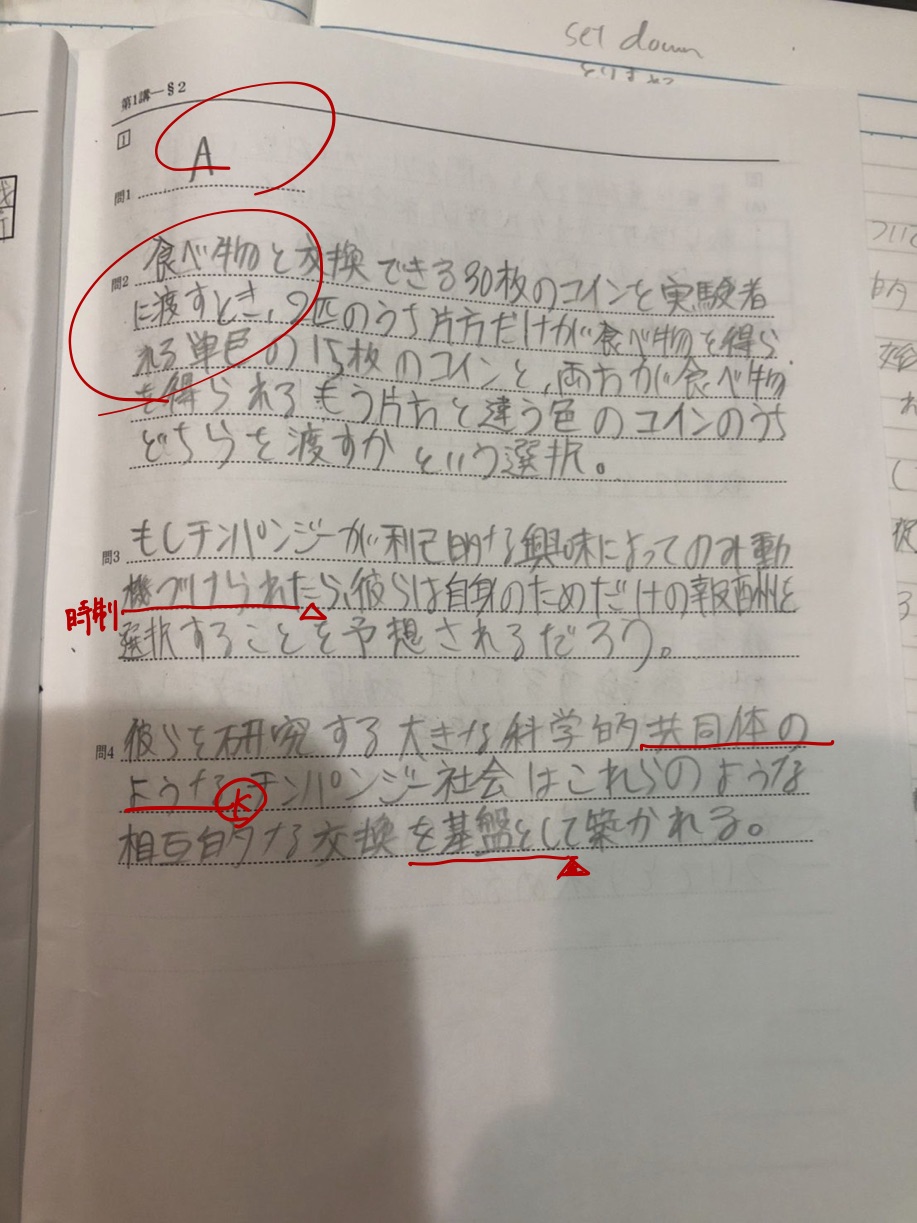 set down
第1講—§2
1
問1 A
問2 食べ物と交換できる30枚のコインを実験者
に渡すとき、2匹のうち片方だけが食べ物を得ら
れる単色の15枚のコインと、両方が食べ物
を得られるもう片方と違う色のコインのうち
どちらを渡すかという選択。
問3 もしチンパンジーが利己的な興味によってのみ動
機づけられたら、彼らは自身のためだけの報酬を
時制
選択することを予想されるだろう。
問4 彼らを研究する大きな科学的共同体の
ような チンパンジー社会はこれらのような
相互的な交換を基盤として築かれる。